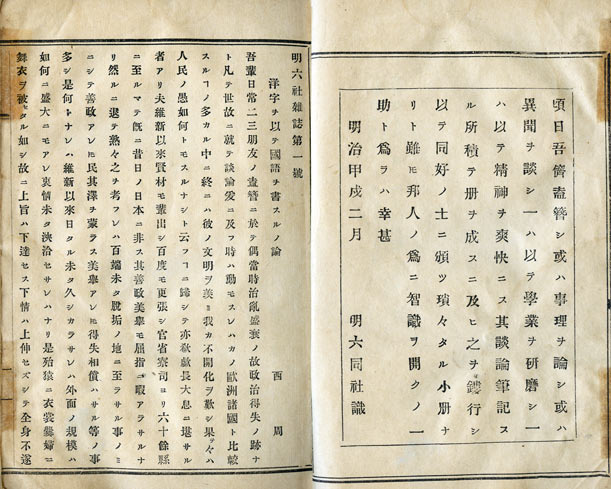 頃日吾儕盍簪シ或ハ事理ヲ論シ或ハ
異聞ヲ談シ一ハ以テ學業ヲ研磨シ一
ハ以テ精神ヲ爽快ニス其談論筆記ス
ル所積テ册ヲ成スニ及ヒ之ヲ鏤行シ
以テ同好ノ士ニ頒ツ瑣々タル小册ナ
リト雖モ邦人ノ爲ニ智識ヲ開クノ一
助ト爲ラハ幸甚
明治甲戌二月　明六同社識
明六社雜誌第一號
洋字ヲ以テ國語ヲ書スルノ論　西　周
吾輩日常二三朋友ノ盍簪ニ於テ偶當時治亂盛衰ノ故政治得失ノ跡ナ
ト凡テ世故ニ就テ談論爰ニ及フ時ハ動モスレハカノ歐洲諸國ト比較
スルコノ多カル中ニ終ニハ彼ノ文明ヲ羨ミ我カ不開化ヲ歎シ果々ハ
人民ノ愚如何トモスルナシト云フコニ歸シテ亦欷歔長大息ニ堪サル
者アリ夫維新以來賢材モ輩出シ百度モ更張シ官省寮司ヨリ六十餘縣
ニ至ルマテ既ニ昔日ノ日本ニ非ス其善政美擧モ屈指ニ暇アラサルナ
リ然ルニ退テ熟々之ヲ考フレハ百端未タ脫垢ノ地ニ至ラサル事ノミ
ニシテ善政アレモ民其澤ヲ蒙ラス美擧アレモ得失相償ハサル等ノ事
多シ是何トナレハ維新以來日タル未タ久シカラサレハ外面ノ規模ハ
如何ニ盛大ニモアレ裏情未タ浹洽セサレハナリ是殆猿ニ衣裳爨婦ニ
舞衣ヲ被セタル如シ故ニ上旨ハ下達セス下情ハ上伸セズシテ全身不遂